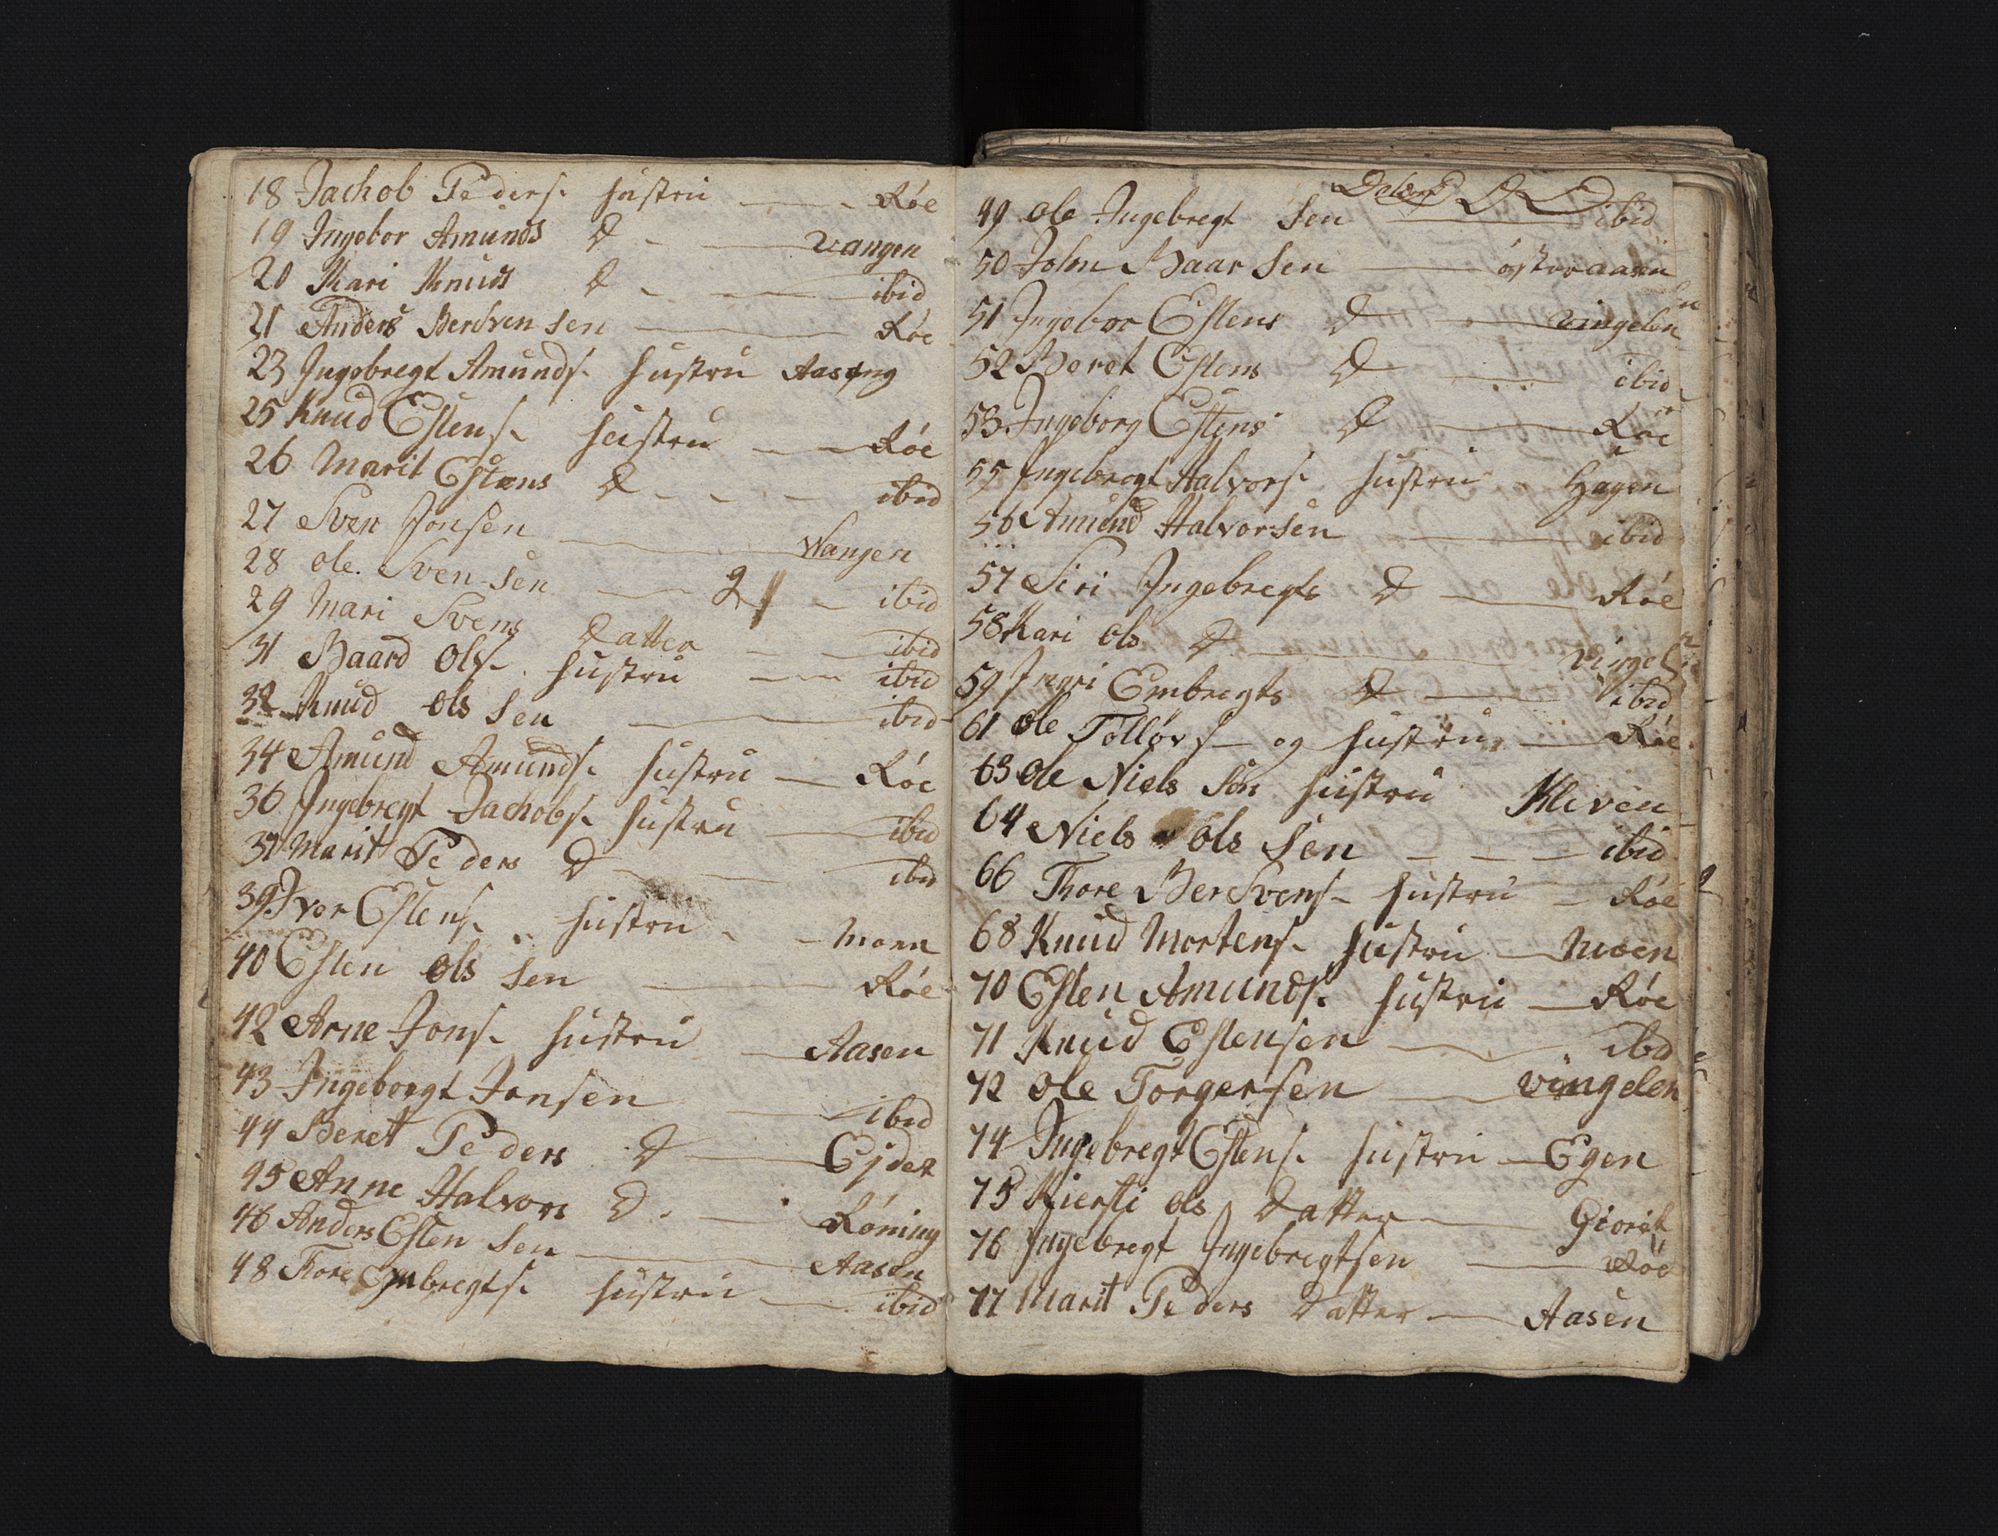 18 Jachob Peders. hustru Røe
19 Ingebor Amunds D Vangen
20 Kari Knuds D ibid
21 Anders Bersven sen Røe
23 Ingebregt Amunds. hustru Aasøng
25 Knud Estens. hustru Røe
26 Marit Estens D ibid
27 Sven Jonsen Vangen
28 ole. Sven sen ibid
29 Mari Svens Datter ibid
31 Baard Ols. hustru ibid
32 Knud ols sen ibid
34 Amund Amunds. hustru Røe
36 Ingebregt Jachobs. hustru ibid
37 Marit Peders D ibid
39 Iver Estens. hustru Moen
40 Esten ols sen Røe
42 Arne Jons. hustru Aasen
43 Ingeborgt Jonsen ibid
44 Beret Peders D Ejdet
45 Anne Halvors D. Røning
46 Anders Esten sen Aasen
48 Tore Embregts. hustru ibid
49 ole Ingebregt sen ibid
50 John Baar sen østvoaasen
51 Ingebor Estens D vingelen
52 Beret Estens D ibid
53 Ingeborg Estens D Røe
55 Ingebregt Halvors. hustru Hagen
56 Amund Halvorsen ibid
57 Siri Ingebregts D Røe
58 Kari ols D vingel
59 Ingri Embregts D ibid
61 ole Tolløvs og hustru Røe
63 ole Niels søn hustru Kleven
64 Niels ols sen ibid
66 Thore Bersvens hustru Røe
68 Knud Mortens. hustru Moen
70 Esten Amunds. hustru Røe
71 Knud Estensen ibd
72 ole Torgersen vingelen
74 Ingebregt Estens. hustru Egen
75 Kiersti ols Datter
76 Ingebregt Ingebregtsen Røe
77 Marit Peders Datter Aasen